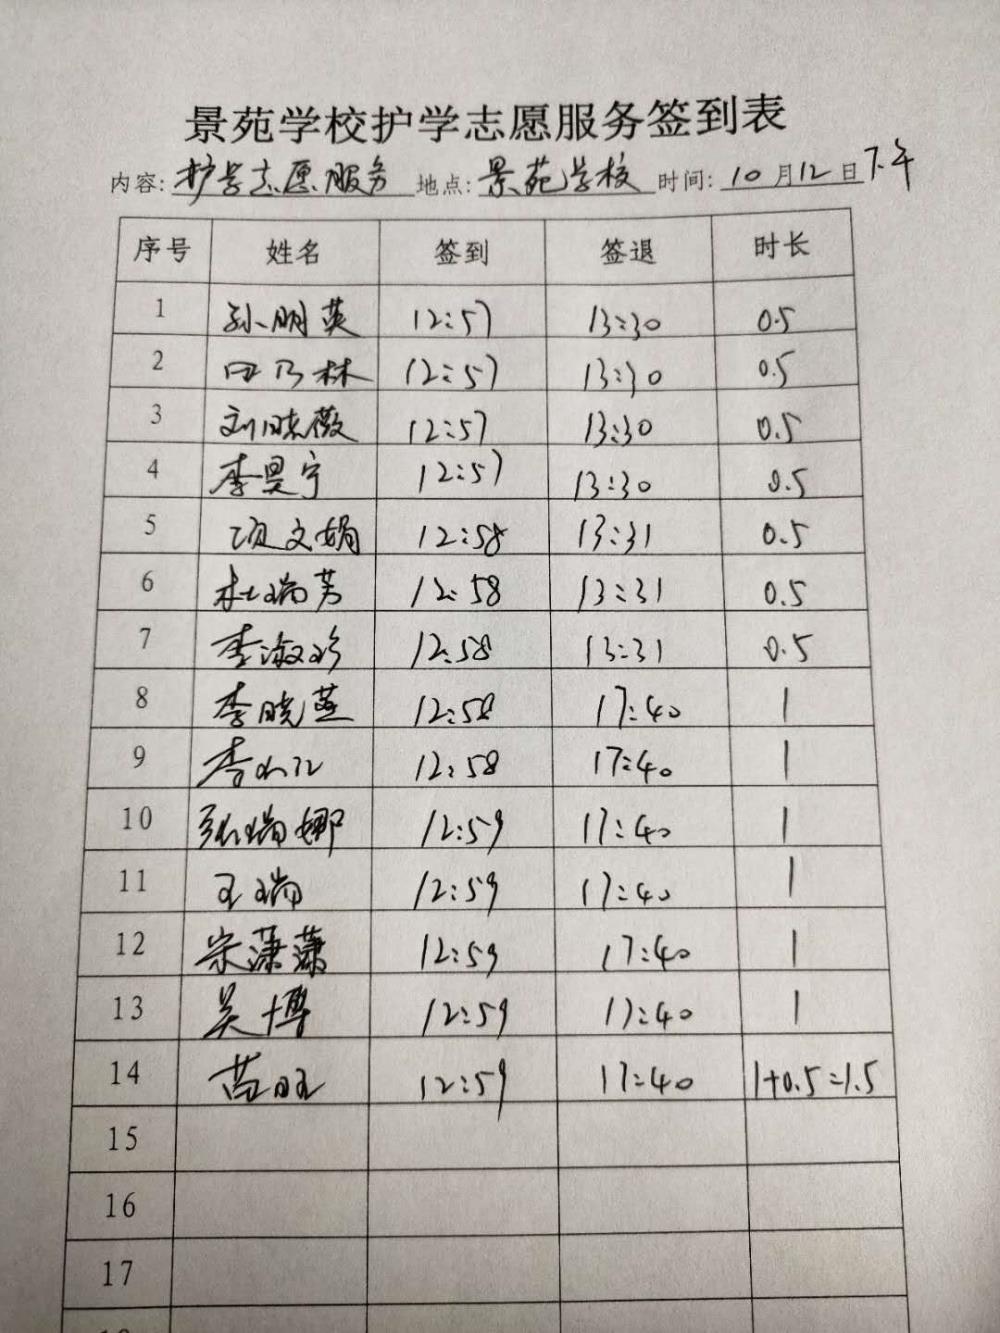 景苑学校护学志愿服务签到表
内容: 护学志愿服务 地点: 景苑学校 时间: 10月12日下午
序号 姓名 签到 签退 时长
1 孙明英 12:57 13:30 0.5
2 田乃林 12:57 13:30 0.5
3 刘晓薇 12:57 13:30 0.5
4 李昊宁 12:57 13:30 0.5
5 项文娟 12:58 13:31 0.5
6 杜瑞芳 12:58 13:31 0.5
7 李淑珍 12:58 13:31 0.5
8 李晓燕 12:58 17:40 1
9 李 12:58 17:40 1
10 张瑞娜 12:59 17:40 1
11 王瑞 12:59 17:40 1
12 宋潇潇 12:59 17:40 1
13 吴博 12:59 17:40 1
14 苗旺 12:59 17:40 1+0.5=1.5
15
16
17